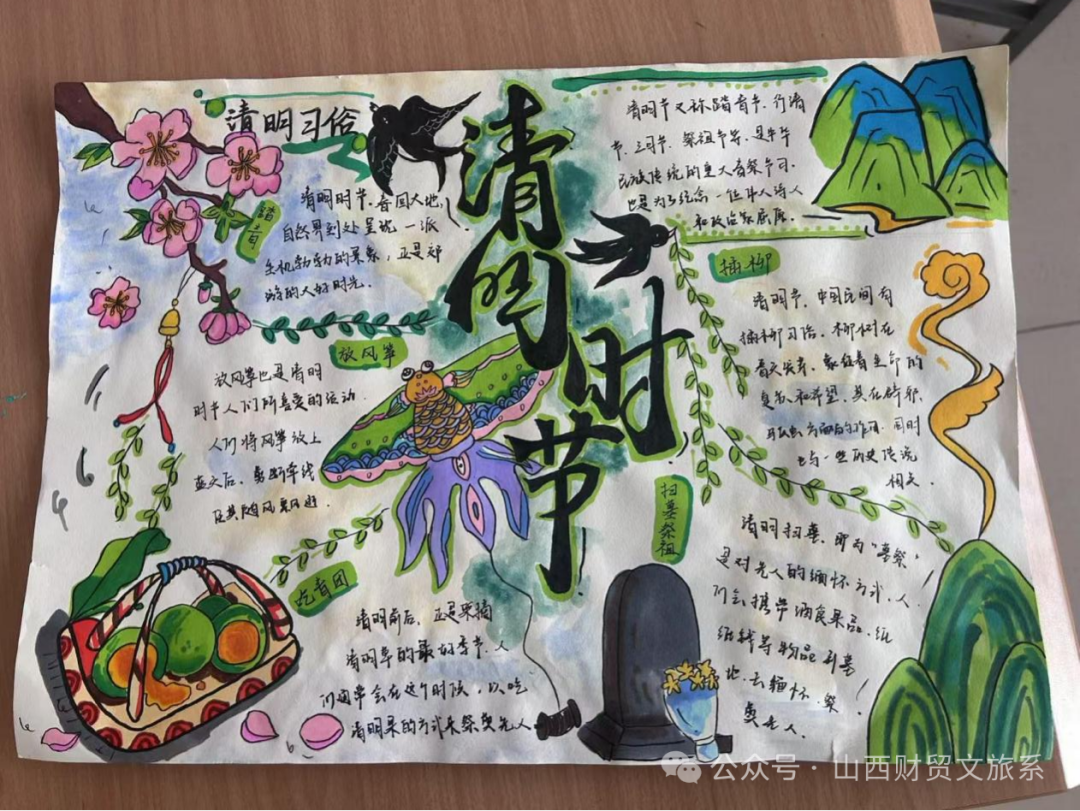 清明习俗
清明时节
清明节又称踏青节、行清
节、三月节、祭祖节等，是中华
民族传统的重大春祭节日.
也是为了纪念一位伟大诗人
和政治家屈原.
踏青
清明时节，春回大地，
自然界到处呈现一派
生机勃勃的景象，正是郊
游的大好时光.
插柳
清明节，中国民间有
插柳习俗，柳树在
春天发芽，象征着生命的
复苏和希望，具在辟邪、
方面的作用，同时
也与一些历史传说
相关.
放风筝
放风筝也是清明
时节人们所喜爱的运动.
人们将风筝放上
蓝天后，剪断牵线
任其随风飘逝.
扫墓祭祖
清明扫墓，即为“墓祭”
是对先人的缅怀方式，人
们会携带酒食果品、纸
钱等物品到墓
地去缅怀、祭
奠先人.
吃青团
清明前后，正是采摘
清明草的最好季节，人
们通常会在这个时候，以吃
清明果的方式来祭奠先人
公众号·山西财贸文旅系